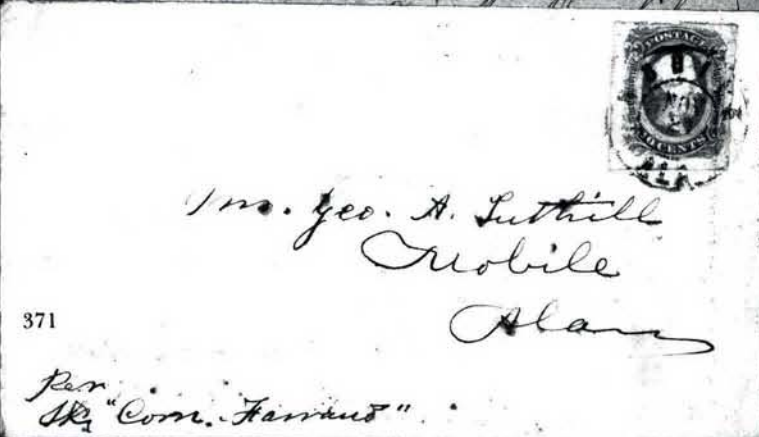 POSTAGE
NOV
CENTS
ALA
Mr. Geo. A. Tuthill
Mobile
Alam
371
Per
Skr "Com. Farrand".